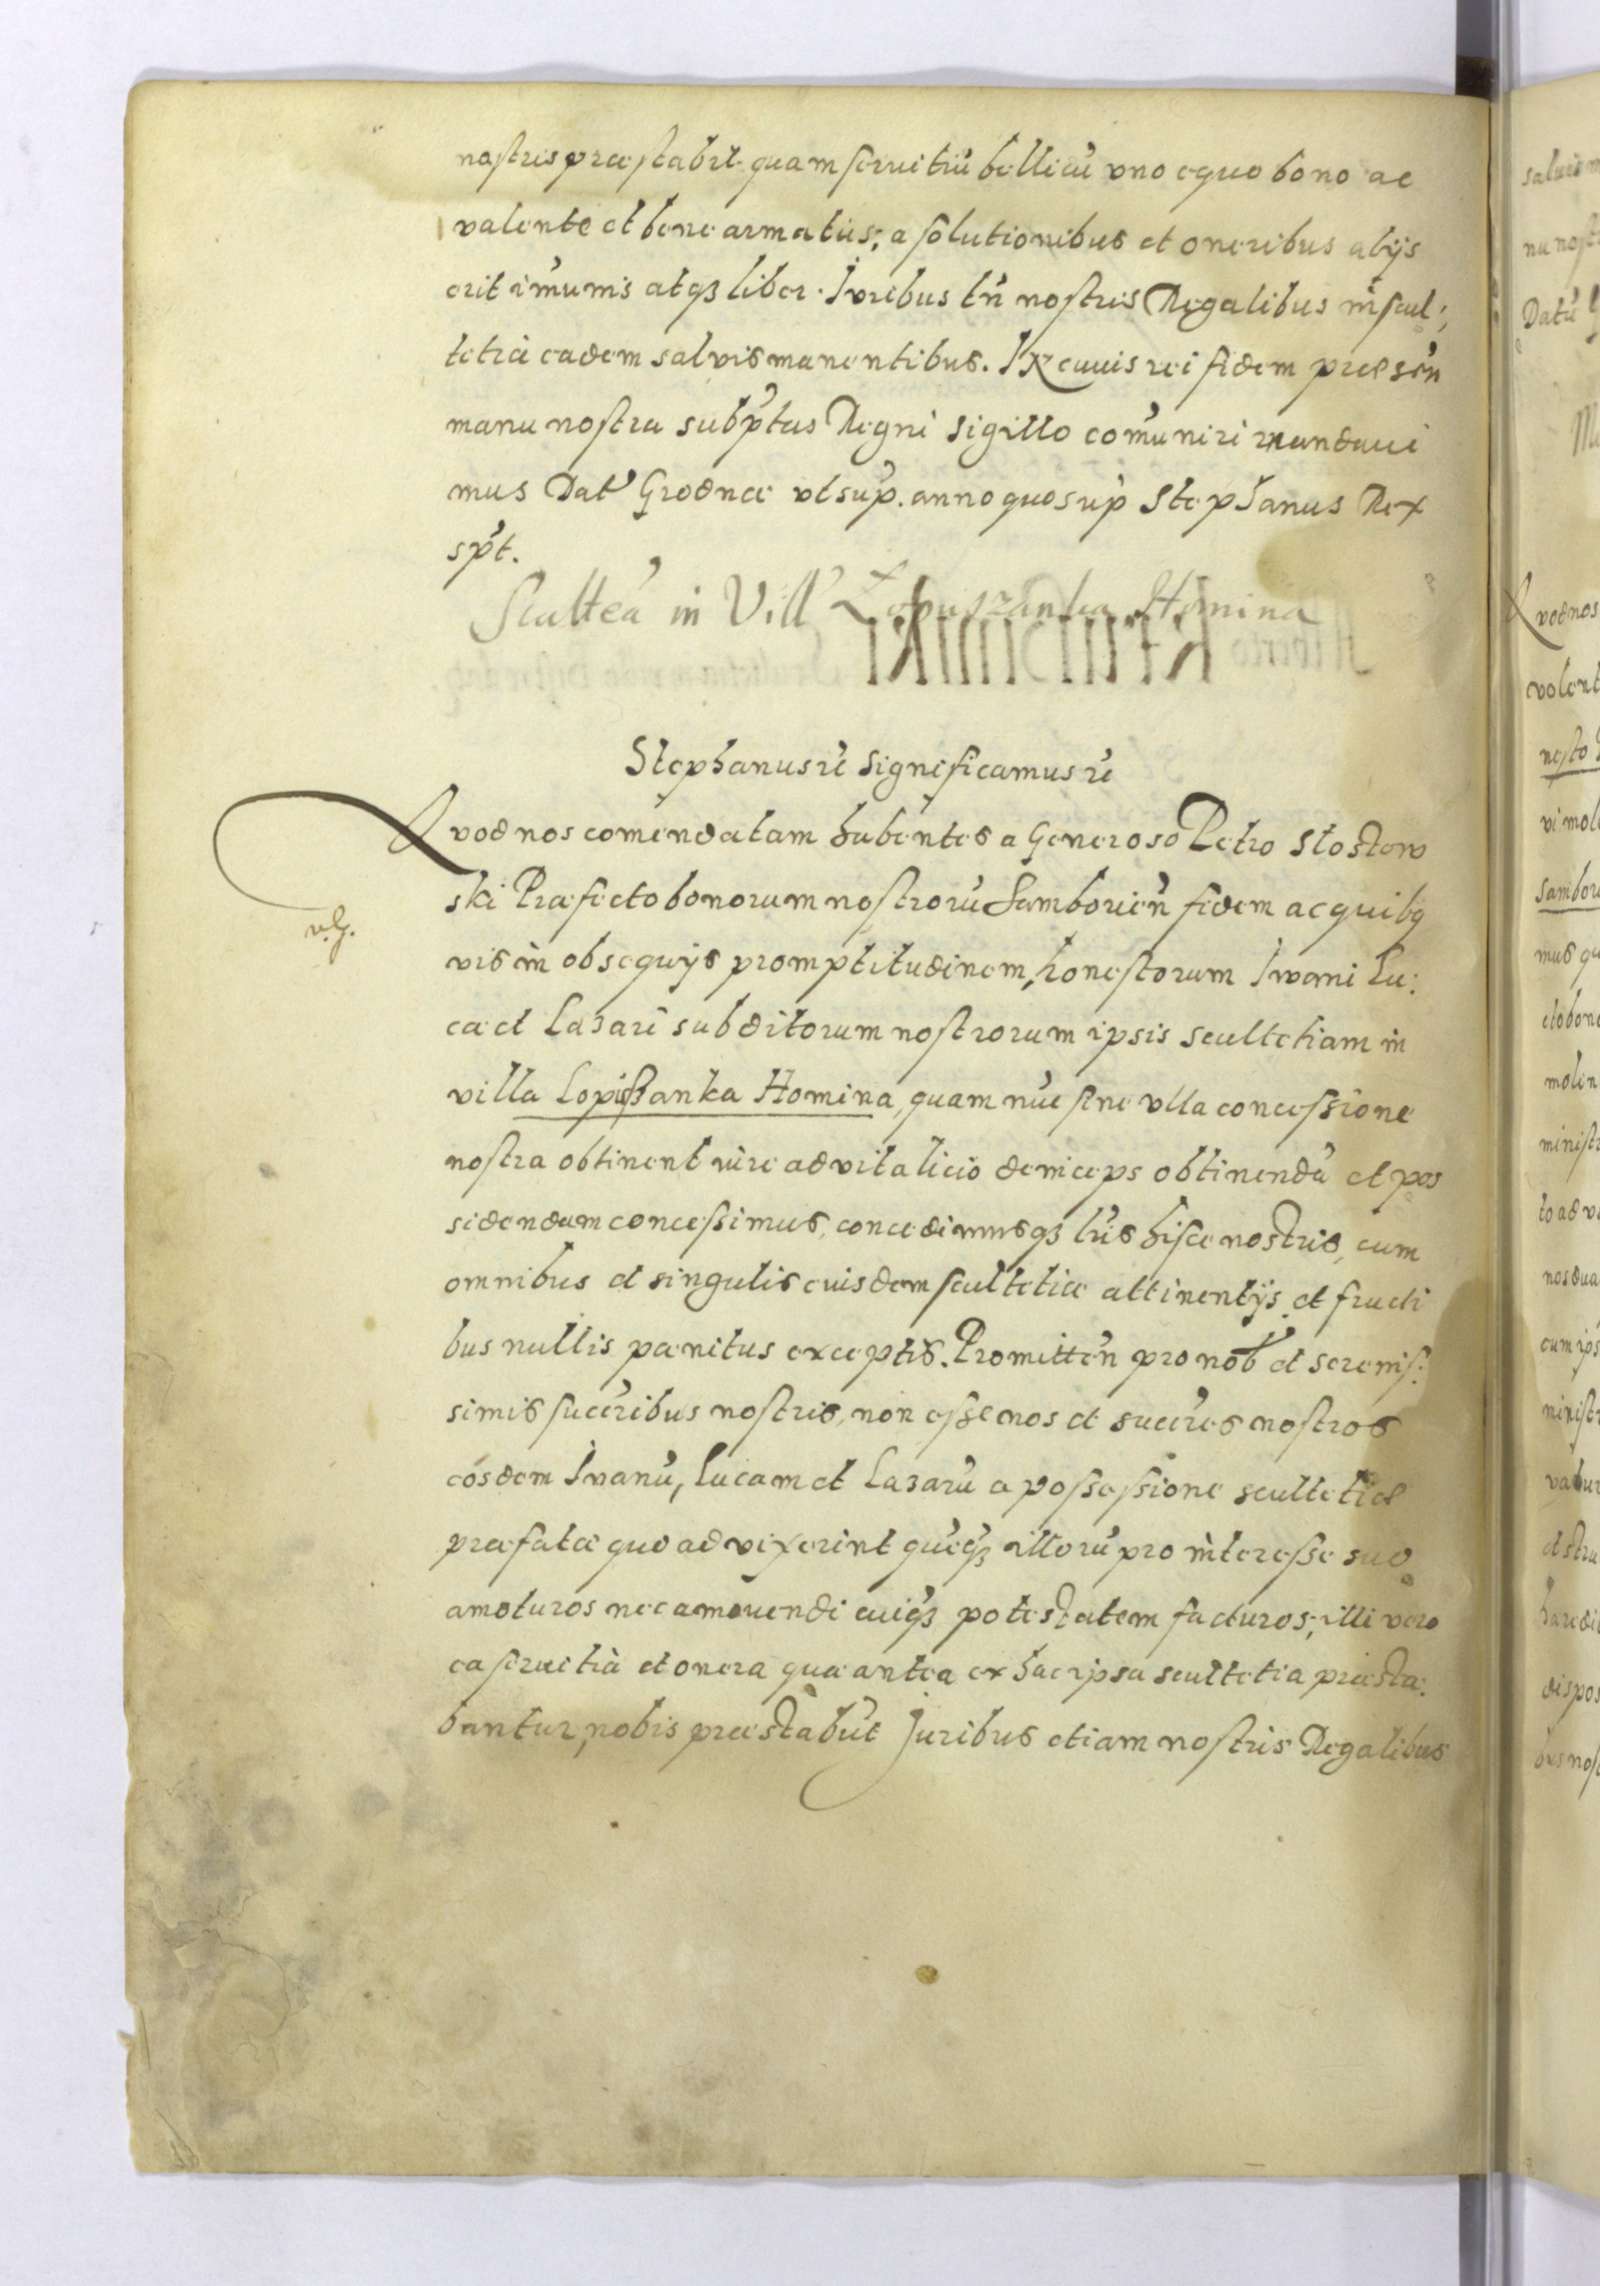 nostris præstabit quam seruitiũ bellicũ vno equo bono ac
valente et bene armatus; a solutionibus et oneribus alijs
erit im̃unis atqꝫ liber. Iuribus tñ nostris Regalibus in scul:
tetia eadem salvis manentibus. In cuius rei fidem præsen̄
manu nostra subp̃tas Regni sigillo com̃uniri mandaui
mus Dat̃ Grodnæ vt sup. anno quo sup Stephanus Rex
sp̃t.
Scultea in Vill' Łopuszanka Homina
Stephanus rẽ significamus rẽ
Qvod nos comendatam habentes a Generoso Petro Stostow
ski Præfecto bonorum nostrorũ Samborien̄ fidem ac quibꝫ
v.g.
vis in obsequijs promptitudinem, honestorum Iwani Lu:
cæ et Lazari subditorum nostrorum ipsis scultetiam in
villa Lopißanka Homina, quam nũc sine vlla concessione
nostra obtinent iure advitalicio deinceps obtinendã et pos
sidendam concessimus, concedimusqꝫ lr̃is hisce nostris, cum
omnibus et singulis euisdem scultetiæ attinentijs et fructi
bus nullis pænitus exceptis. Promitten̄ pro nob̃ et serenis:
simis succ̃ribus nostris, non esse nos et succ̃res nostros
eosdem Ivanũ, Lucam et Lazarũ a possessione scultetiæ
præfatæ quoad vixerint quẽqꝫ illorũ pro interesse suo
amoturos nec amouendi cuiqꝫ potestatem facturos; illi vero
ea seruitia et onera quæ antea ex hac ipsa scultetia præsta:
bantur, nobis præstabũt Juribus etiam nostris Regalibus